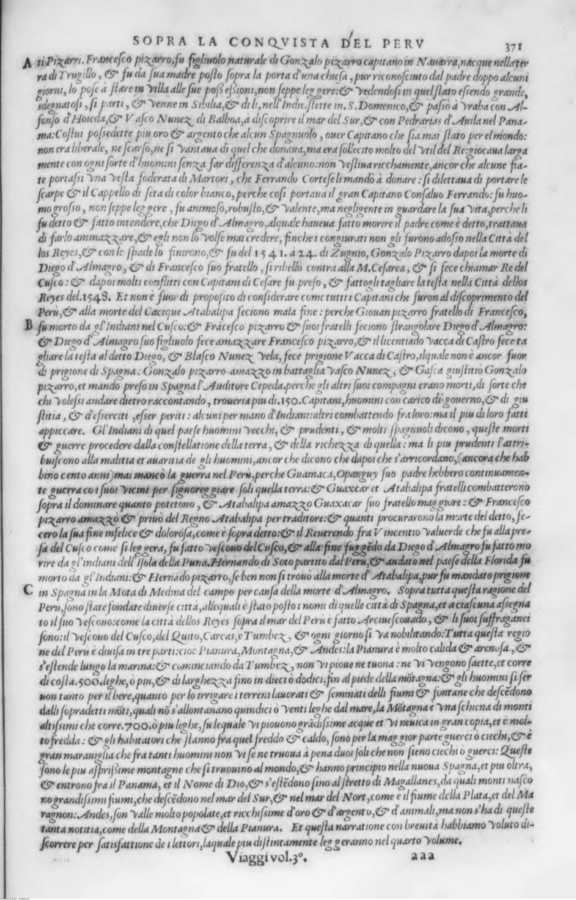 SOPRA LA CONQVISTA DEL PERV
371
A ti Pizarri. Francesco pizarro, fu figliuolo naturale di Gonzalo pizarro capitano in Nauarra, nacque nella ter
ra di Trugillo, & fu da sua madre posto sopra la porta d'una chiesa, pur riconosciuto dal padre doppo alcuni
giorni, lo pose à stare in villa alle sue possessioni, non seppe leggere: & vedendosi in quel stato essendo grande,
sdegnatosi, si parti, & venne in Sibilia, & di li, nell'Indie. stette in S. Domenico, & passò à Vraba con Al-
fonso d'Hoieda, & Vasco Nunez di Balboa, à discoprire il mar del Sur, & con Pedrarias d'Auila nel Pana-
ma: Costui possedette piu oro & argento che alcun Spagnuolo, ouer Capitano che sia mai stato per el mondo:
non era liberale, ne scarso, ne si vantaua di quel che donaua, ma era sollecito molto del vtil del Re, giocaua larga
mente con ogni sorte d'huomini senza far differenza d'alcuno: non vestiua ricchamente, ancor che alcune fia-
te portasse vna vesta foderata di Martori, che Ferrando Cortese li mandò à donare: si dilettaua di portare le
scarpe & il Cappello di seta di color bianco, perche cosi portaua il gran Capitano Consaluo Ferrando: fu huo-
mo grosso, non seppe leggere, fu animoso, robusto, & valente, ma negligente in guardare la sua vita, perche li
fu detto & fatto intendere, che Diego d'Almagro, alquale haueua fatto morire il padre come è detto, trattaua
di farlo ammazzare, & egli non lo volse mai credere, finche i congiurati non gli furono adosso nella Città del
los Reyes, & con le spade lo finirono, & fu del 1541. a 24. di Zugno, Gonzalo Pizarro dapoi la morte di
Diego d'Almagro, & di Francesco suo fratello, si ribellò contra alla M. Cesarea, & si fece chiamar Re del
Cusco: & dapoi molti conflitti con Capitani di Cesare fu preso, & fattogli tagliare la testa nella Città dellos
Reyes del. 1548. Et non è fuor di proposito di considerare come tutti i Capitani che furon al discoprimento del
Peru, & alla morte del Cacique Atabalipa feciono mala fine: perche Giouan pizarro fratello di Francesco,
B fu morto da gl'Indiani nel Cusco: & Frãcesco pizarro & suoi fratelli feciono strangolare Diego d'Almagro:
& Diego d'Almagro suo figliuolo fece amazzare Francesco pizarro, & il licentiado Vacca di Castro fece ta
gliare la testa al detto Diego, & Blasco Nunez Vela, fece prigione Vacca di Castro, ilquale non è ancor fuor
di prigione di Spagna: Gonzalo pizarro amazzo in battaglia Vasco Nunez, & Gasca giustitiò Gonzalo
pizarro, et mando preso in Spagna l'Auditore Cepeda, perche gli altri suoi compagni erano morti, di sorte che
chi volessi andare dietro raccontando, troueria piu di. 150. Capitani, huomini con carico di gouerno, & di giu
stitia, & d'eserciti, esser periti: alcuni per mano d'Indiani: altri combattendo fra loro: ma il piu di loro fatti
appiccare. Gl'Indiani di quel paese huomini vecchi, & prudenti, & molti spagnuoli dicono, queste morti
& guerre procedere dalla constellatione della terra, & della richezza di quella: ma li piu prudenti l'attri-
buiscono alla malitia et auaritia de gli huomini, ancor che dicono che dapoi che s'arricordano, (ancora che hab
bino cento anni) mai mancò la guerra nel Peru, perche Guainaca, Opanguy suo padre hebbero continuamen-
te guerra co i suoi vicini per signoreggiare soli quella terra: & Guaxcar et Atabalipa fratelli combatterono
sopra il dominare quanto potettono, & Atabalipa amazzo Guaxacar suo fratello maggiore: & Francesco
pizarro amazzò & priuò del Regno Atabalipa per traditore: & quanti procurarono la morte del detto, fe-
cero la sua fine infelice & dolorosa, come è sopra detto: & il Reuerendo fra Vincentio valuerde che fu alla pre-
sa del Cusco come si leggera, fu fatto vescouo del Cusco, & alla fine fuggẽdo da Diego d'Almagro fu fatto mo
rire da gl'indiani dell'isola della Puna. Hernando di Soto partito dal Peru, & andato nel paese della Florida fu
morto da gl'Indiani: & Hernãdo pizarro, se ben non si trouò alla morte d'Atabalipa, pur fu mandato prigione
C in Spagna in la Mota di Medina del campo per causa della morte d'Almagro. Sopra tutta questa ragione del
Peru, sono state fondate diuerse città, allequali è stato posto i nomi di quelle città di Spagna, et a ciascuna assegna
to il suo vescouo: come la città dellos Reyes sopra il mar del Peru è fatto Arciuescouado, & li suoi suffraganei
sono: il vescouo del Cusco, del Quito, Carcas, e Tumbez, & ogni giorno si va nobilitando: Tutta questa regio
ne del Peru è diuisa in tre parti: cioe Pianura, Montagna, & Andes: la Pianura è molto calida & arenosa, &
s'estende lungo la marina: & cominciando da Tumbez, non vi pioue ne tuona: ne vi vengono saette, et corre
di costa. 500. leghe, ò piu, & di larghezza fino in dieci ò dodici, fin al piede della mõtagna: & gli huomini si ser
uon tanto per il bere, quanto per lo irrigare i terreni lauorati & seminati delli fiumi & fontane che descẽdono
dalli sopradetti mõti, quali nõ s'allontanano quindici ò venti leghe dal mare, la Mõtagna è vna schiena di monti
altissimi che corre. 700. ò piu leghe, su lequale vi piouono grãdissime acque et vi neuica in gran copia, et è mol-
to fredda: & gli habitatori che stanno fra quel freddo & caldo, sono per la maggior parte guerci ò ciechi, & è
gran marauiglia che fra tanti huomini non vi se ne truoua à pena duoi soli che non sieno ciechi ò guerci: Queste
sono le piu asprissime montagne che si truouino al mondo, & hanno principio nella nuoua Spagna, et piu oltra,
& entrono fra il Panamà, et il Nome di Dio, & s'estẽdono sino al stretto di Magallanes, da quali monti nasco
no grandissimi fiumi, che descẽdono nel mar del Sur, & nel mar del Nort, come è il fiume della Plata, et del Ma
ragnon: Andes, son valle molto popolate, et ricchissime d'oro & d'argento, & d'animali, ma non s'ha di queste
tanta notitia, come della Montagna & della Pianura. Et questa narratione con breuità habbiamo voluto di-
scorrere per satisfattione de i lettori, laquale piu distintamente leggeranno nel quarto volume.
Viaggi vol. 3º. aaa